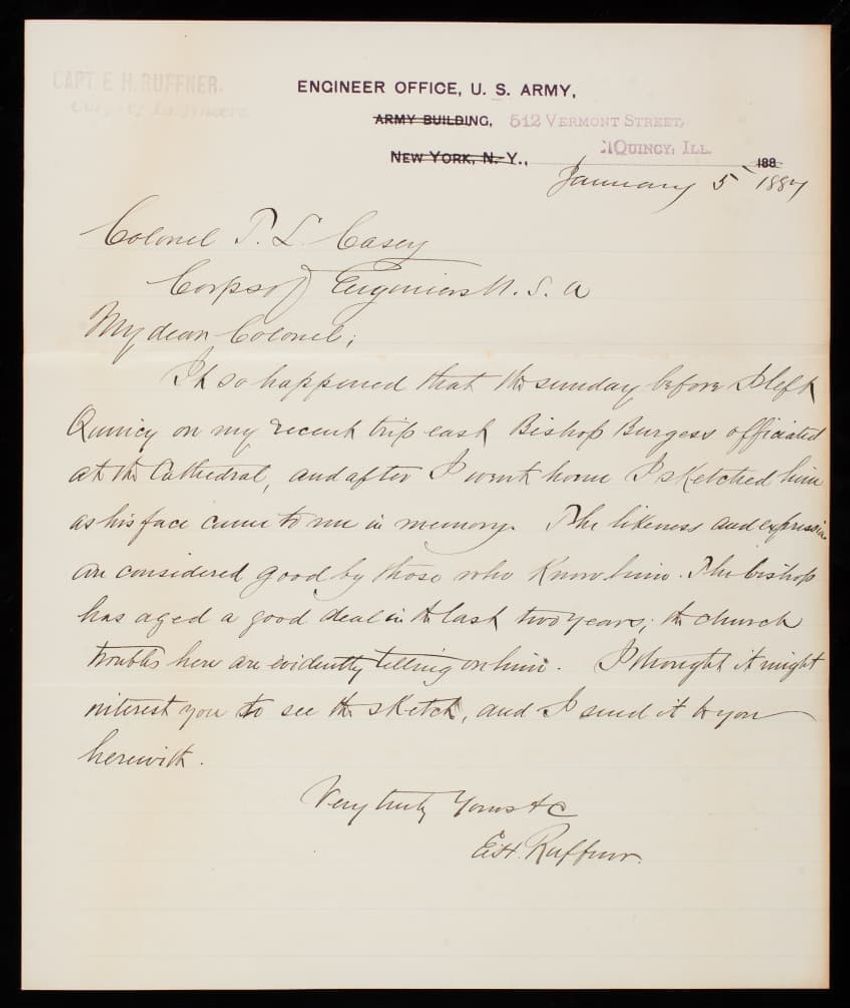 CAPT. E. H. RUFFNER.
Corps of Engineers
ENGINEER OFFICE, U. S. ARMY,
ARMY BUILDING, 512 VERMONT STREET,
QUINCY, ILL.
NEW YORK, N. Y., 188
January 5 1887
Colonel T. L. Casey
Corps of Engineers U. S. A
My dear Colonel;
It so happened that the sunday before I left
Quincy on my recent trip east Bishop Burgess officiated
at the Cathedral, and after I went home I sketched him
as his face came to me in memory. The likeness and expression
are considered good by those who know him. The bishop
has aged a good deal in the last two years; the church
troubles here are evidently telling on him. I thought it might
interest you to see the sketch, and I send it to you
herewith.
Very truly Yours &c
E.H. Ruffner.